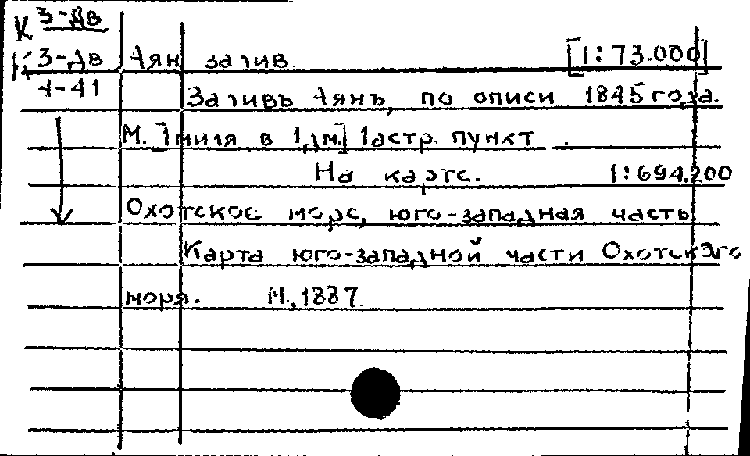 К 3-Дв
К 3-Дв Аян залив [1:73.000]
4-41 Заливъ Аянъ, по описи 1845 года.
М. [1 миля в 1 дм.] 1 астр. пункт.
На карте. 1:694.200
Охотское море, юго-западная часть
Карта юго-западной части Охотского
моря. М., 1887